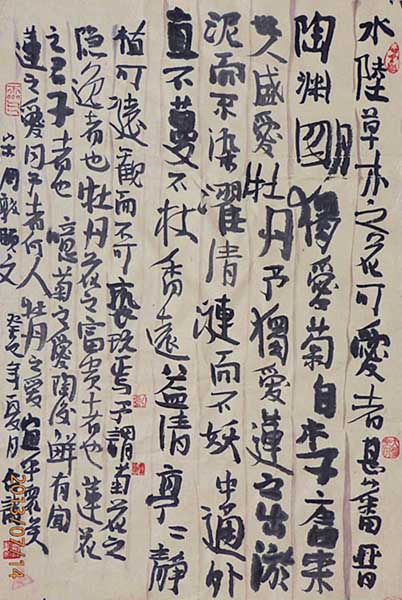 水陸草木之花可愛者甚蕃晋
陶渊明獨愛菊自李唐来
人盛愛牡丹予獨愛蓮之出淤
泥而不染濯清漣而不妖中通外
直不蔓不枝香遠益清亭二静
植可遠觀而不可褻玩焉予謂菊花之
隐逸者也牡丹花之富贵者也蓮花
之君子者也噫菊之愛陶後鮮有闻
蓮之愛同予者何人牡丹之愛宜乎眾矣
宋周敦頤文 癸巳年夏月
2013/07/14